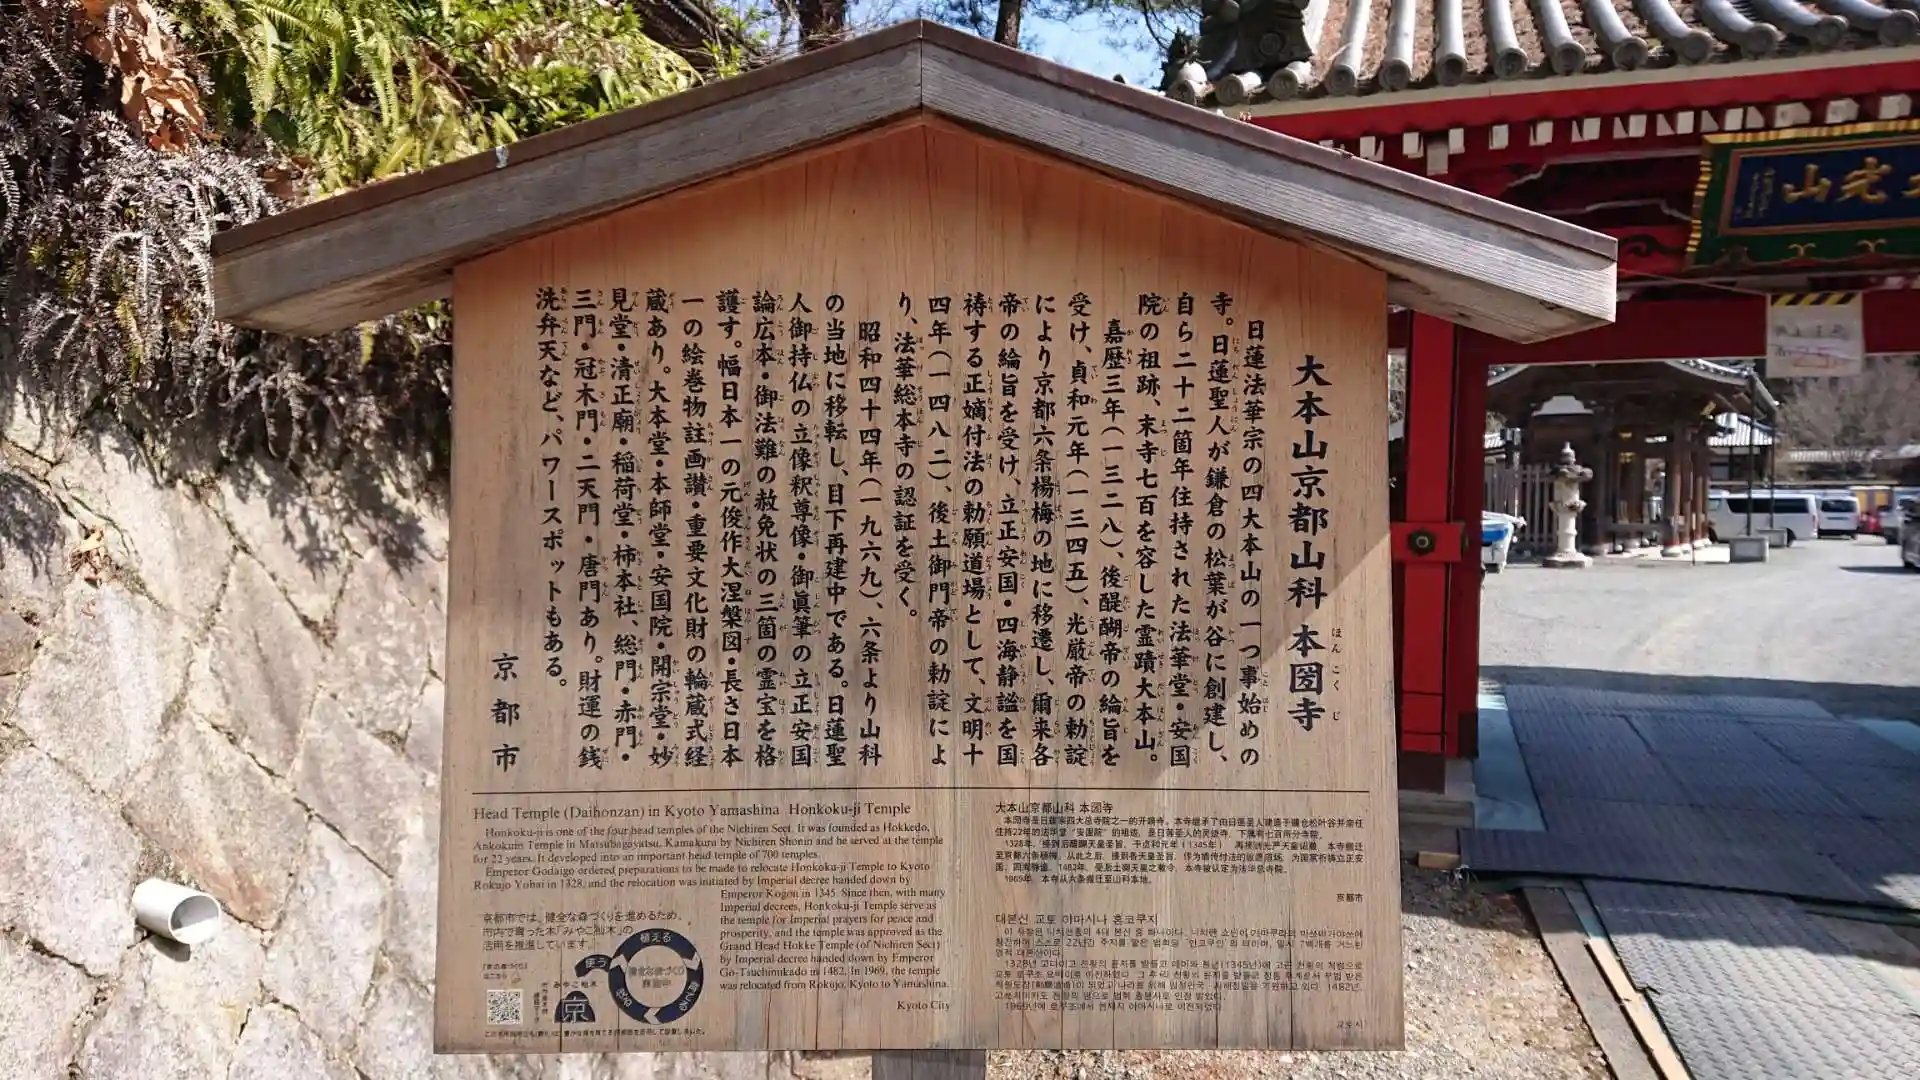 大本山京都山科 本圀寺
日蓮法華宗の四大本山の一つ事始めの
寺。日蓮聖人が鎌倉の松葉が谷に創建し、
自ら二十二箇年住持された法華堂・安国
院の祖跡、末寺七百を容した霊蹟大本山。
嘉歴三年(一三二八)、後醍醐帝の綸旨を
受け、貞和元年(一三四五)、光厳帝の勅諚
により京都六条楊梅の地に移遷し、爾来各
帝の綸旨を受け、立正安国・四海静謐を国
祷する正嫡付法の勅願道場として、文明十
四年(一四八二)、後土御門帝の勅諚によ
り、法華総本寺の認証を受く。
昭和四十四年(一九六九)、六条より山科
の当地に移転し、目下再建中である。日蓮聖
人御持仏の立像釈尊像・御眞筆の立正安国
論広本・御法難の赦免状の三箇の霊宝を格
護す。幅日本一の元俊作大涅槃図・長さ日本
一の絵巻物註画讃・重要文化財の輪蔵式経
蔵あり。大本堂・本師堂・安国院・開宗堂・妙
見堂・清正廟・稲荷堂・柿本社、総門・赤門・
三門・冠木門・二天門・唐門あり。財運の銭
洗弁天など、パワースポットもある。
京都市
Head Temple (Daihonzan) in Kyoto Yamashina Honkoku-ji Temple
Honkoku-ji is one of the four head temples of the Nichiren Sect. It was founded as Hokkedo,
Ankokuin Temple in Matsubagayatsu, Kamakura by Nichiren Shonin and he served at the temple
for 22 years. It developed into an important head temple of 700 temples.
Emperor Godaigo ordered preparations to be made to relocate Honkoku-ji Temple to Kyoto
Rokujo Yobai in 1328, and the relocation was initiated by Imperial decree handed down by
Emperor Kogon in 1345. Since then, with many
Imperial decrees, Honkoku-ji Temple serve as
the temple for Imperial prayers for peace and
prosperity, and the temple was approved as the
Grand Head Hokke Temple (of Nichiren Sect)
by Imperial decree handed down by Emperor
Go-Tsuchimikado in 1482. In 1969, the temple
was relocated from Rokujo, Kyoto to Yamashina.
Kyoto City
京都市では、健全な森づくりを進めるため、
市内で育った木「みやこ杣木」の
活用を推進しています。
植える
使う
育てる
みやこ杣木
京
大本山京都山科 本圀寺
1969年，本寺从六条搬迁至山科本地。
京都市
대본산 교토 야마시나 혼코쿠지
교토시
光山